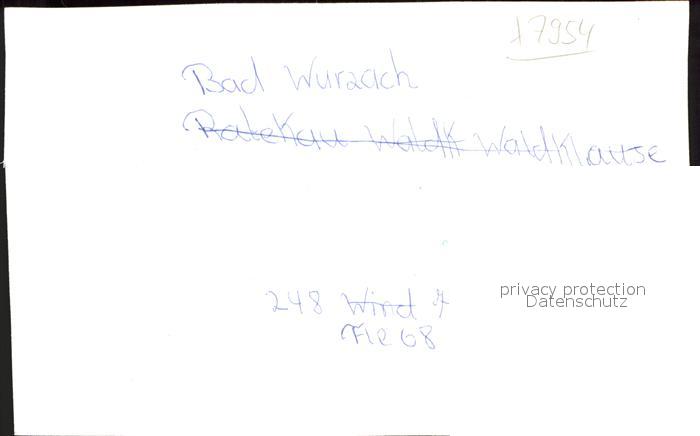 17954
Bad Wurzach
Ratekau Waldk Waldklause
248 Wind
privacy protection
Datenschutz
68